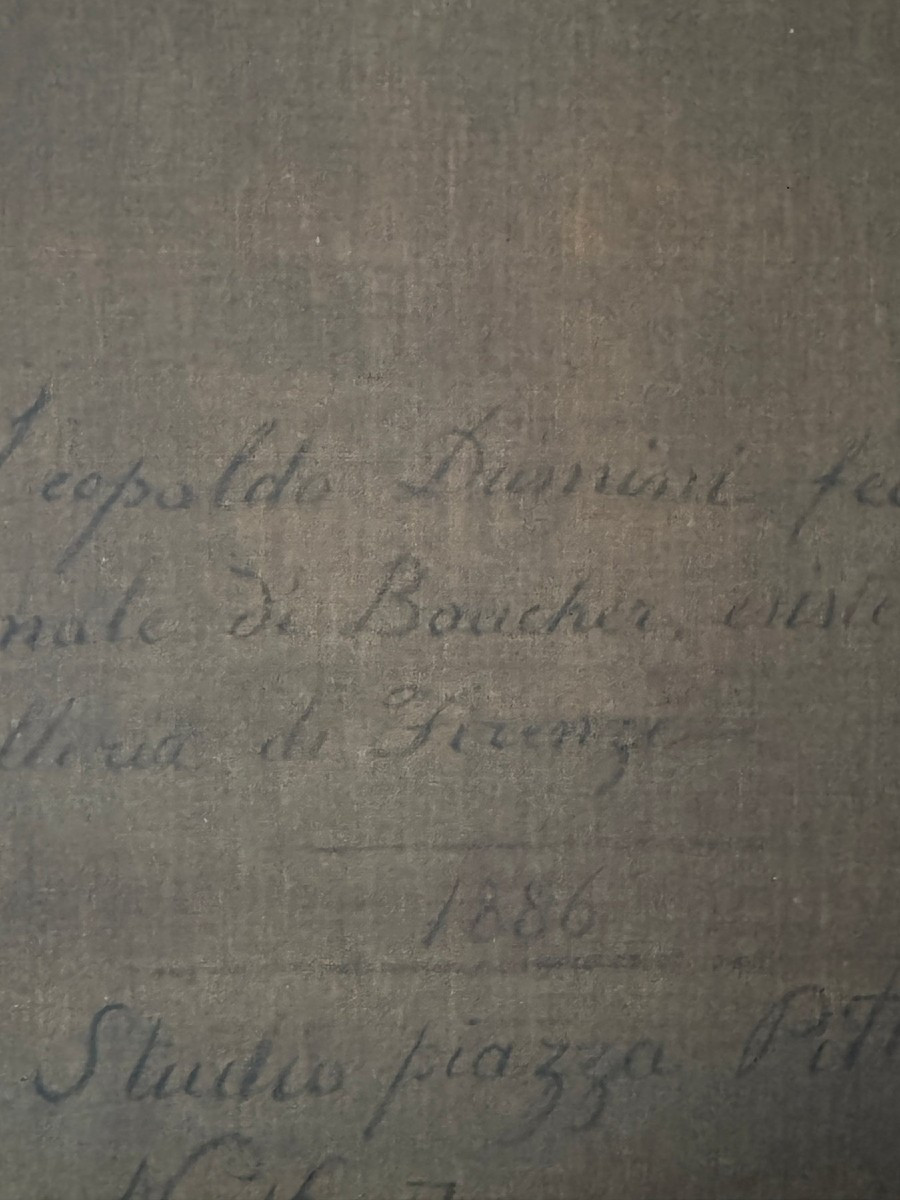 Leopoldo Dumini fec
nale di Boucher, esiste
lleria di Firenze
1886
Studio piazza Pitt